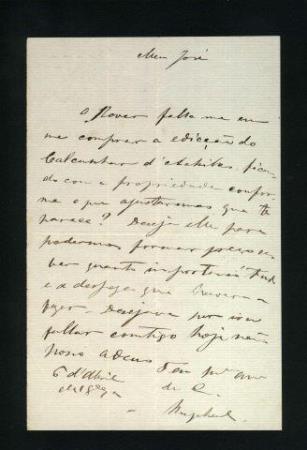 Meu José
o Rover falla me em
me comprar a edicção do
Calcanhar d'Achilles, fican
do com a propriedade confor
me o que ajustarmos que te
parece? Deseja elle para
podermos formar
ver quanto importará tudo
e a despeza que houver a
fazer. Desejava por isso
fallar comtigo hoje não
posso adeus
6 d'Abril Teu
de